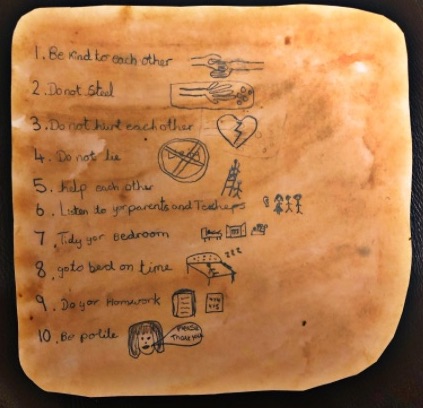 1. Be kind to each other
2. Do not steel
3. Do not hurt each other
4. Do not lie
5. help each other
6. Listen to yor parents and Teachers
7. Tidy yor Bedroom
8. go to bed on time
9. Do yor Homework
10. Be polite
Please
Thank you
zzz